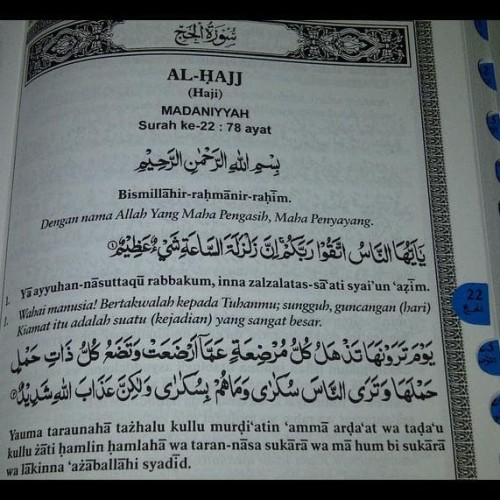 سُورَةُ الْحَجِّ
AL-ḤAJJ
(Haji)
MADANIYYAH
Surah ke-22 : 78 ayat
بِسْمِ اللّٰهِ الرَّحْمٰنِ الرَّحِيْمِ
Bismillāhir-raḥmānir-raḥīm.
Dengan nama Allah Yang Maha Pengasih, Maha Penyayang.
يٰٓاَيُّهَا النَّاسُ اتَّقُوْا رَبَّكُمْۚ اِنَّ زَلْزَلَةَ السَّاعَةِ شَيْءٌ عَظِيْمٌ ١
1. Yā ayyuhan-nāsuttaqū rabbakum, inna zalzalatas-sā‘ati syai'un ‘aẓīm.
1. Wahai manusia! Bertakwalah kepada Tuhanmu; sungguh, guncangan (hari)
Kiamat itu adalah suatu (kejadian) yang sangat besar.
يَوْمَ تَرَوْنَهَا تَذْهَلُ كُلُّ مُرْضِعَةٍ عَمَّآ اَرْضَعَتْ وَتَضَعُ كُلُّ ذَاتِ حَمْلٍ
حَمْلَهَا وَتَرَى النَّاسَ سُكَارٰى وَمَا هُمْ بِسُكَارٰى وَلٰكِنَّ عَذَابَ اللّٰهِ شَدِيْدٌ ٢
Yauma taraunahā tażhalu kullu murḍi‘atin ‘ammā arḍa‘at wa taḍa‘u
kullu żāti ḥamlin ḥamlahā wa taran-nāsa sukārā wa mā hum bi sukārā
wa lākinna ‘ażāballāhi syadīd.
22
الحج